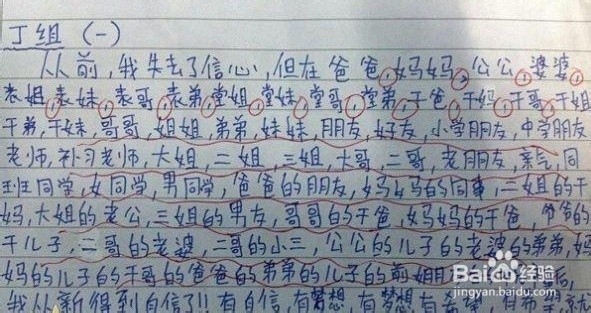 丁组（一）
从前，我失去了信心，但在爸爸，妈妈，公公，婆婆，
表姐，表妹，表哥，表弟，堂姐，堂妹，堂哥，堂弟，干爸，干妈，干哥，干姐
干弟，干妹，哥哥，姐姐，弟弟，妹妹，朋友，好友，小学朋友，中学朋友
老师，补习老师，大姐，二姐，三姐，大哥，二哥，老朋友，亲戚，同
班同学，女同学，男同学，爸爸的朋友，妈妈的同事，二姐的干
妈，大姐的老公，三姐的男友，哥哥的干爸，妈妈的干爸，爷爷的
干儿子，二哥的老婆，二哥的小三，公公的儿子的老婆的弟弟，妈
妈的儿子的干哥的爸爸的弟弟的儿子的前姐
我从新得到自信了!!有自信，有梦想，有梦想有希望，有希望就
Baidu 经验
jingyan.baidu.com